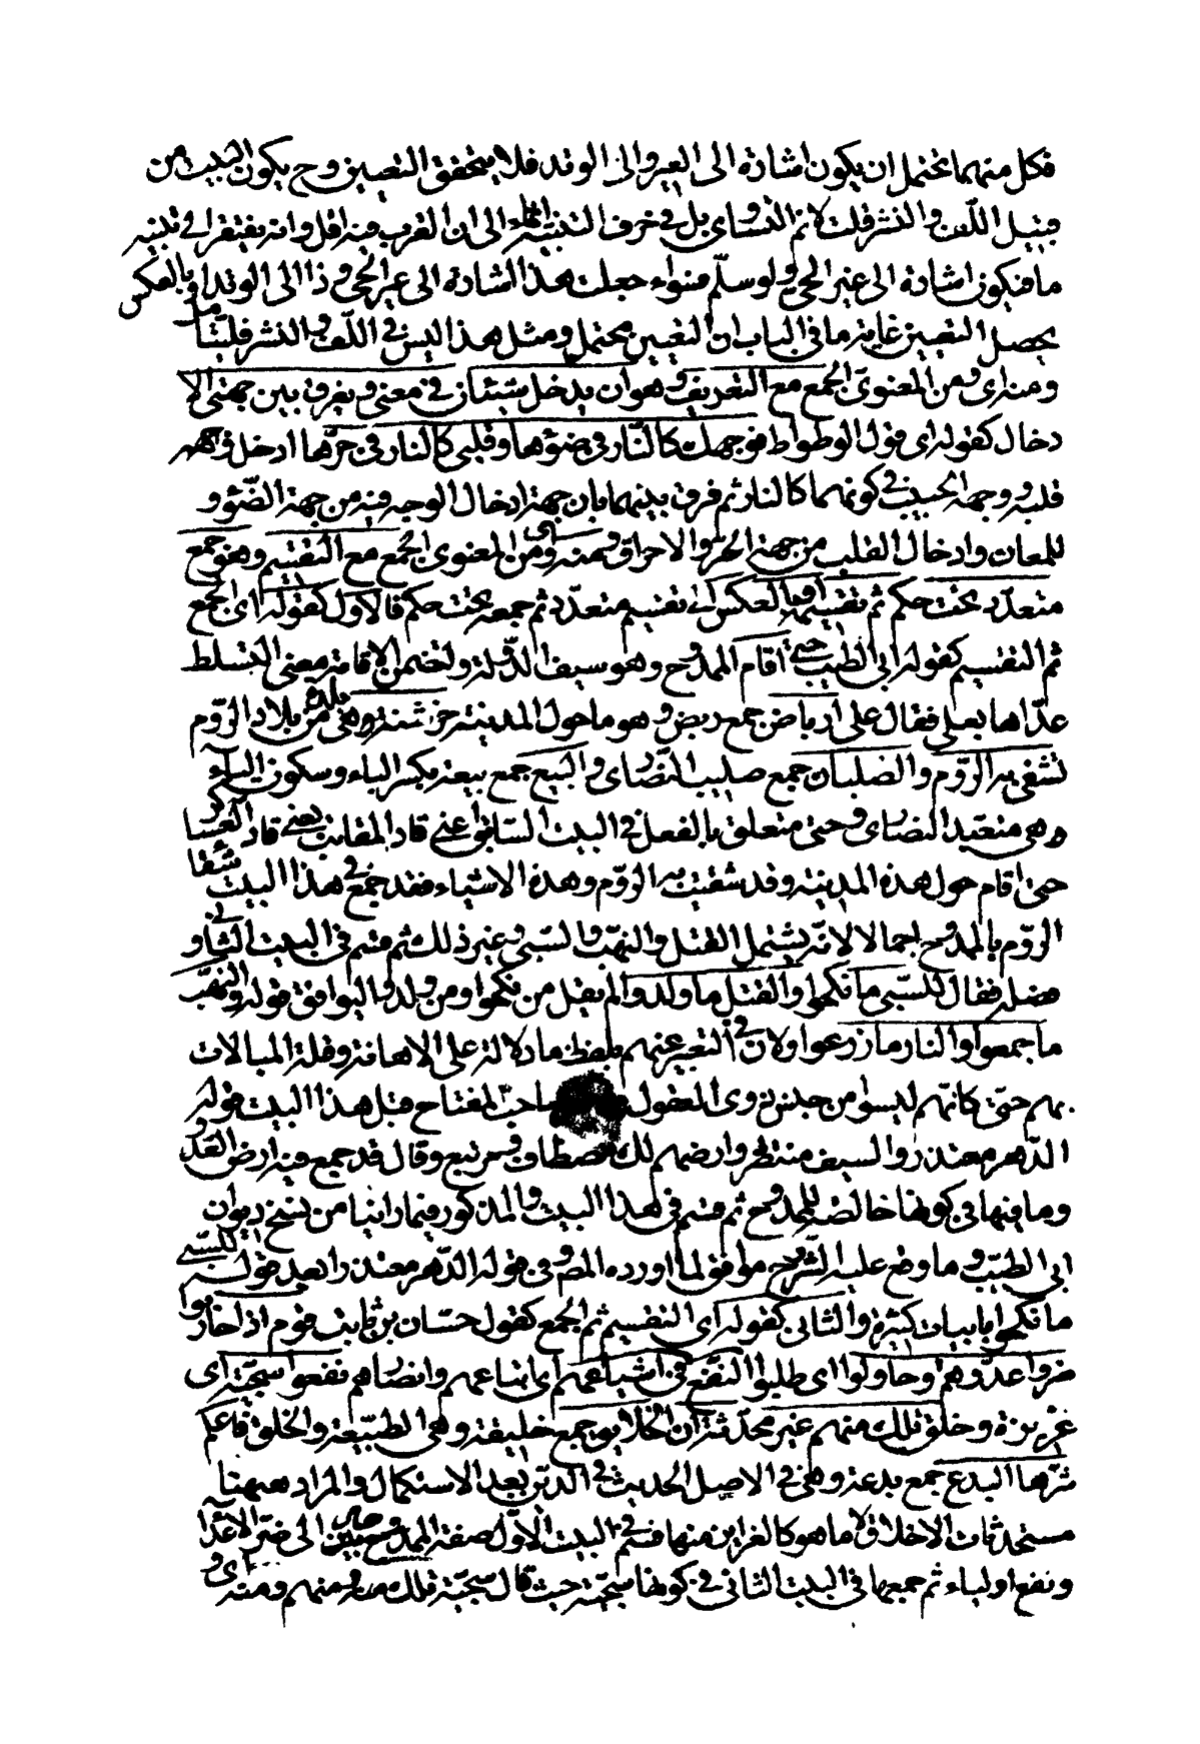 فكل منهما يحتمل ان يكون اشارة الى العير والى الوتد فلا يتحقق التعيين وح يكون البيت من
قبيل اللف والنشر قلت لا نم التساوى بل فى حرف التنبيه ايماء الى ان القرب فيه اقل وانه يفتقر الى تنبيه
ما فيكون اشارة الى عير الحى ولو سلم فسواء جعلت هذا اشارة الى عير الحى وذا الى الوتد او بالعكس
يحصل التعيين غاية ما فى الباب ان التعيين محتمل ومثل هذا ليس فى اللف والنشر فليتأمل
ومنه اى ومن المعنوى الجمع مع التفريق وهو ان يدخل شيئان فى معنى ويفرق بين جهتى الا
دخال كقوله اى قول الوطواط فوجهك كالنار فى ضوئها وقلبى كالنار فى حرها ادخل
قلبه ووجه الحبيب فى كونهما كالنار ثم فرق بينهما بان جهة ادخال الوجه فيه من جهة الضوء و
اللمعان وادخال القلب من جهة الحر والاحراق ومنه اى ومن المعنوى الجمع مع التقسيم وهو جمع
متعدد تحت حكم ثم تقسيمه او بالعكس اى تقسيم متعدد ثم جمعه تحت حكم فالاول كقوله اى الجمع
ثم التقسيم كقول ابى الطيب حتى اقام الممدوح وهو سيف الدولة ولتضمن الاقامة معنى التسلط
عداها بعلى فقال على ارباض جمع ربض وهو ما حول المدينة خرشنة وهى بلدة من بلاد الروم
تشقى به الروم والصلبان جمع صليب النصارى والبيع جمع بيعة بكسر الباء وسكون الياء
وهى متعبد النصارى وحتى متعلق بالفعل فى البيت السابق اعنى قاد المقانب يعنى قاد العساكر
حتى اقام حول هذه المدينة وقد شقيت به الروم وهذه الاشياء فقد جمع فى هذا البيت شقاء
الروم بالممدوح اجمالا لانه يشتمل القتل والنهب والسبى وغير ذلك ثم قسم فى البيت الثانى و
فصله فقال للسبى ما نكحوا والقتل ما ولدوا لم يقل من نكحوا ومن ولدوا ليوافق قوله والنهب
ما جمعوا والنار ما زرعوا ولان فى التعبير عنهم بلفظ ما دلالة على الاهانة وقلة المبالات
بهم حتى كانهم ليسوا من جنس ذوى العقول صاحب المفتاح قبل هذا البيت قوله
الدهر معتذر والسيف منتظر وارضهم لك مصطاف ومرتبع وقال قد جمع فيه ارض العدو
وما فيها فى كونها خالصة للممدوح ثم قسم فى هذا البيت والمذكور فيما راينا من نسخ ديوان
ابى الطيب وما وقع عليه الشروح موافق لما اورده المص وفى قوله الدهر معتذر ابعد قوله للسبى
ما نكحوا بابيات كثيرة والثانى كقوله اى التقسيم ثم الجمع كقول حسان بن ثابت قوم اذا حاربوا
ضروا عدوهم او حاولوا اى طلبوا النفع فى اشياعهم اى اتباعهم وانصارهم نفعوا سجية اى
غريزة وخلق تلك منهم غير محدثة ان الخلايق جمع خليقة وهى الطبيعة والخلق فاعلم
شرها البدع جمع بدعة وهى فى الاصل الحديث فى الدين بعد الاستكمال والمراد ههنا
مستحدثات الاخلاق لا ما هو كالغرايز منها قسم فى البيت الاول صفة الممدوحين الى ضر الاعداء
ونفع اولياء ثم جمعها فى البيت الثانى فى كونها سجية حيث قال سجية تلك منهم ومنه اى و